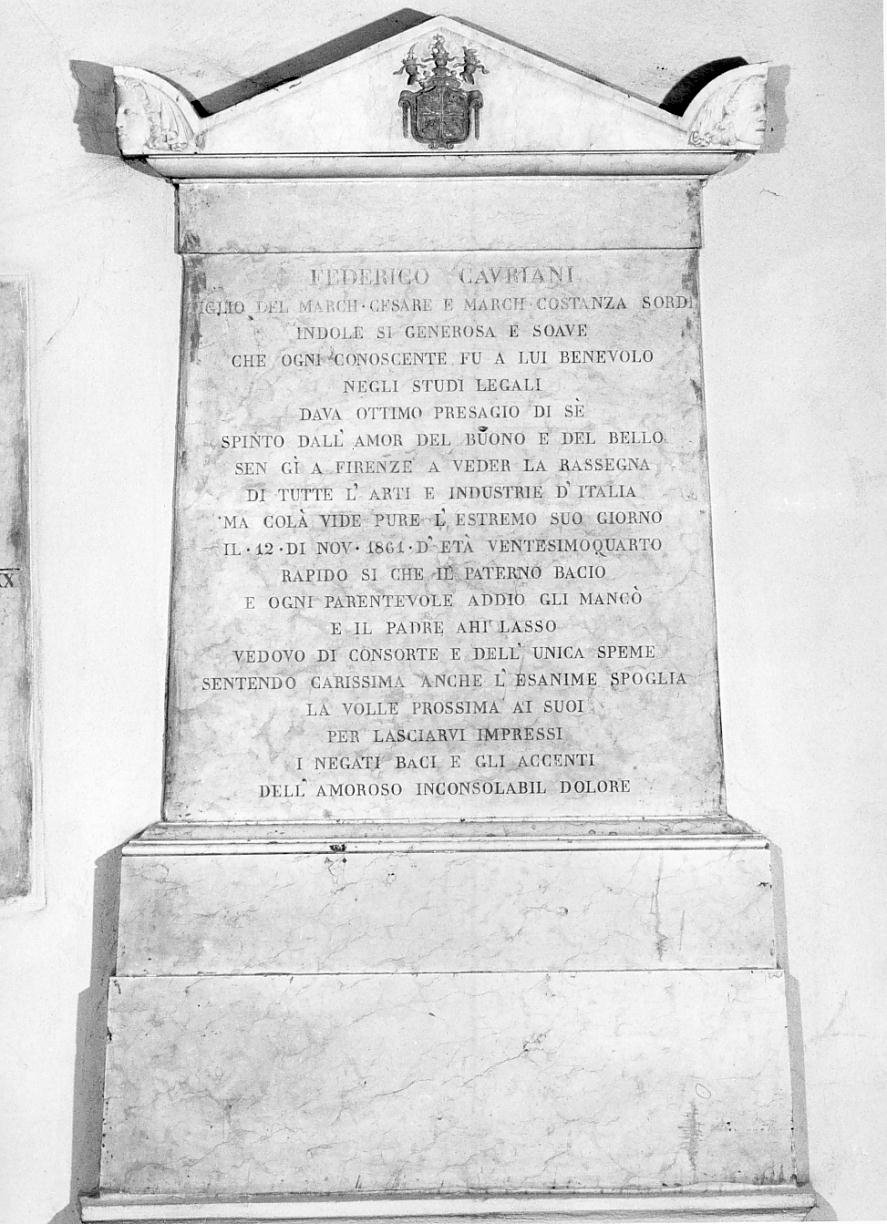 FEDERICO CAVRIANI
FIGLIO DEL MARCH · CESARE E MARCH · COSTANZA SORDI
INDOLE SI GENEROSA E SOAVE
CHE OGNI CONOSCENTE FU A LUI BENEVOLO
NEGLI STUDI LEGALI
DAVA OTTIMO PRESAGIO DI SÈ
SPINTO DALL' AMOR DEL BUONO E DEL BELLO
SEN GÌ A FIRENZE A VEDER LA RASSEGNA
DI TUTTE L' ARTI E INDUSTRIE D' ITALIA
MA COLÀ VIDE PURE L' ESTREMO SUO GIORNO
IL · 12 · DI NOV · 1861 · D' ETÀ VENTESIMOQUARTO
RAPIDO SI CHE IL PATERNO BACIO
E OGNI PARENTEVOLE ADDIO GLI MANCÒ
E IL PADRE AHI LASSO
VEDOVO DI CONSORTE E DELL' UNICA SPEME
SENTENDO CARISSIMA ANCHE L' ESANIME SPOGLIA
LA VOLLE PROSSIMA AI SUOI
PER LASCIARVI IMPRESSI
I NEGATI BACI E GLI ACCENTI
DELL' AMOROSO INCONSOLABIL DOLORE